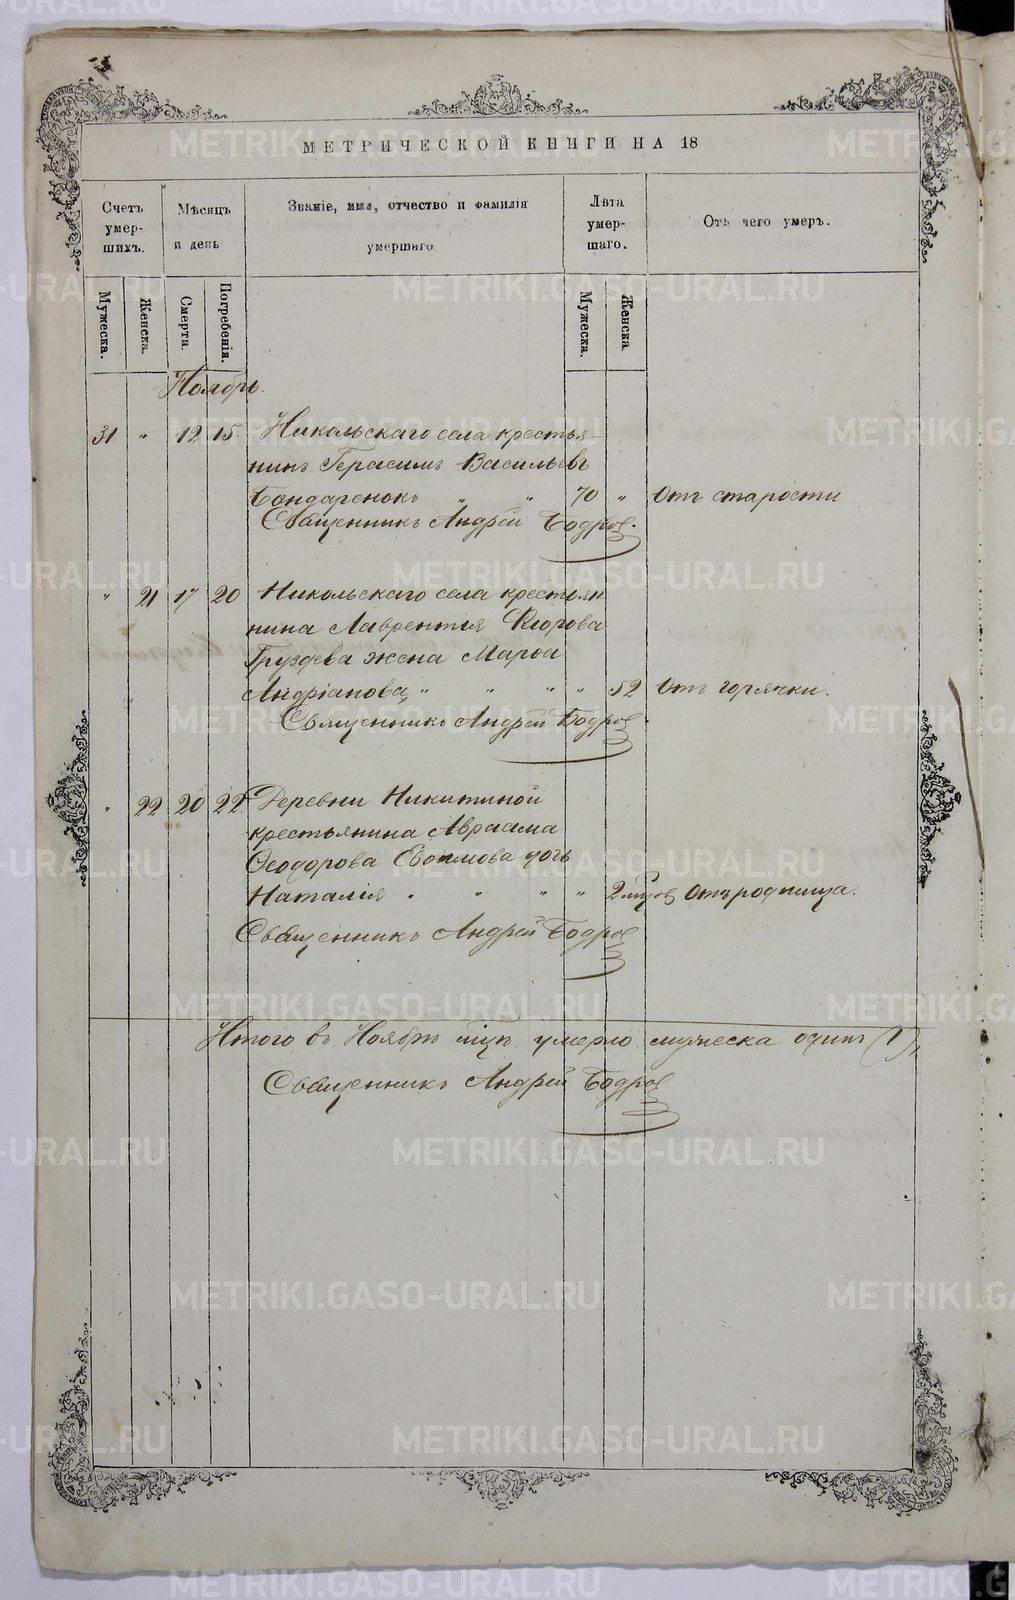 МЕТРИЧЕСКОЙ КНИГИ НА 18
Счетъ умер-шихъ.
Мѣсяцъ и день
Званіе, имя, отчество и фамилія умершаго.
Лѣта умер-шаго.
Отъ чего умеръ.
Мужеска.
Женска.
Смерти.
Погребенія.
Мужеска.
Женска.
Ноябрь.
31 " 12 15. Никольскаго села крестья-
нинъ Герасимъ Васильевъ
Бондаренокъ " " 70 " Отъ старости
Священникъ Андрей Бодров.
" 21 17 20 Никольскаго села крестьян
нина Лаврентія
Груздева жена Марѳа
Андріанова " " " " 52 Отъ горячки.
Священникъ Андрей Бодров
" 22 20 22 Деревни Никитиной
крестьянина Авраама
Ѳеодорова Евѳимова дочь
Наталія " " " " 2 Отъ родимца.
Священникъ Андрей Бодров
Итого въ Ноябрѣ умерло мужеска одинъ (1),
Священникъ Андрей Бодров
METRIKI.GASO-URAL.RU